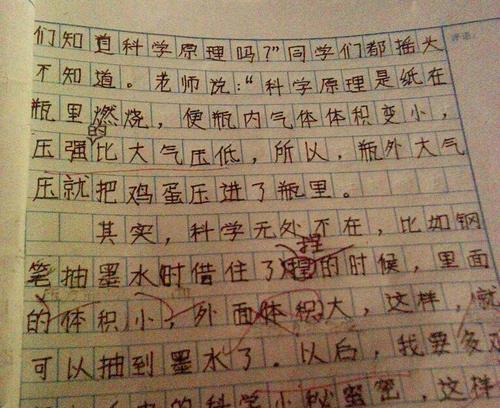 们知道科学原理吗？"同学们都摇头
不知道。老师说："科学原理是纸在
瓶里燃烧，使瓶内气体体积变小，
压强的比大气压低，所以，瓶外大气
压就把鸡蛋压进了瓶里。
其实，科学无处不在，比如钢
笔抽墨水时借住了捏的时候，里面
的体积小，外面体积大，这样，就
可以抽到墨水了。以后，我要多
的科学小秘密，这样